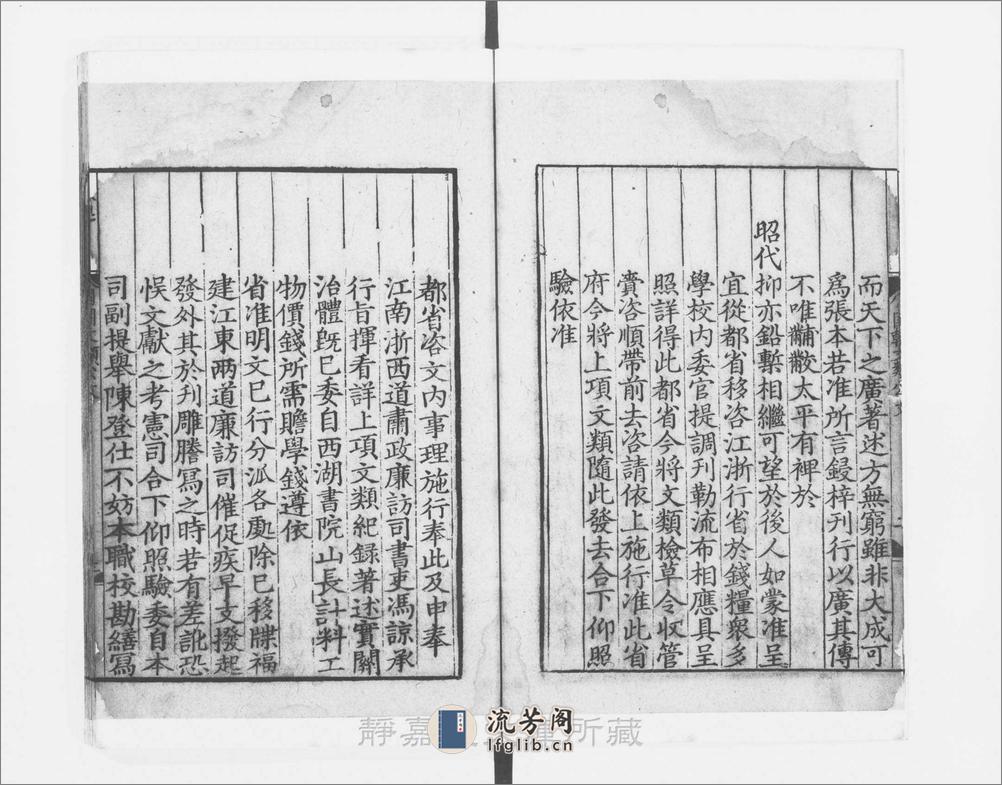 而天下之廣著述方無窮雖非大成可
為張本若准所言鋟梓刊行以廣其傳
不唯黼黻太平有裨於
昭代抑亦鉛槧相繼可望於後人如蒙准呈
宜從都省移咨江浙行省於錢糧衆多
學校内委官提調刊勒流布相應具呈
照詳得此都省今將文類檢草令收管
賫咨順帶前去咨請依上施行准此省
府今將上項文類隨此發去合下仰照
驗依准
都省咨文内事理施行奉此及申奉
江南浙西道肅政廉訪司書吏馮諒承
行旨揮看詳上項文類紀録著述實關
治體既已委自西湖書院山長計料工
物價錢所需贍學錢遵依
省准明文已行分派各處除已移牒福
建江東兩道廉訪司催促疾早支撥起
發外其於刋雕謄寫之時若有差訛恐
悮文獻之考憲司合下仰照驗委自本
司副提舉陳登仕不妨本職校勘繕寫
靜嘉 所藏
流芳阁
lfglib.cn